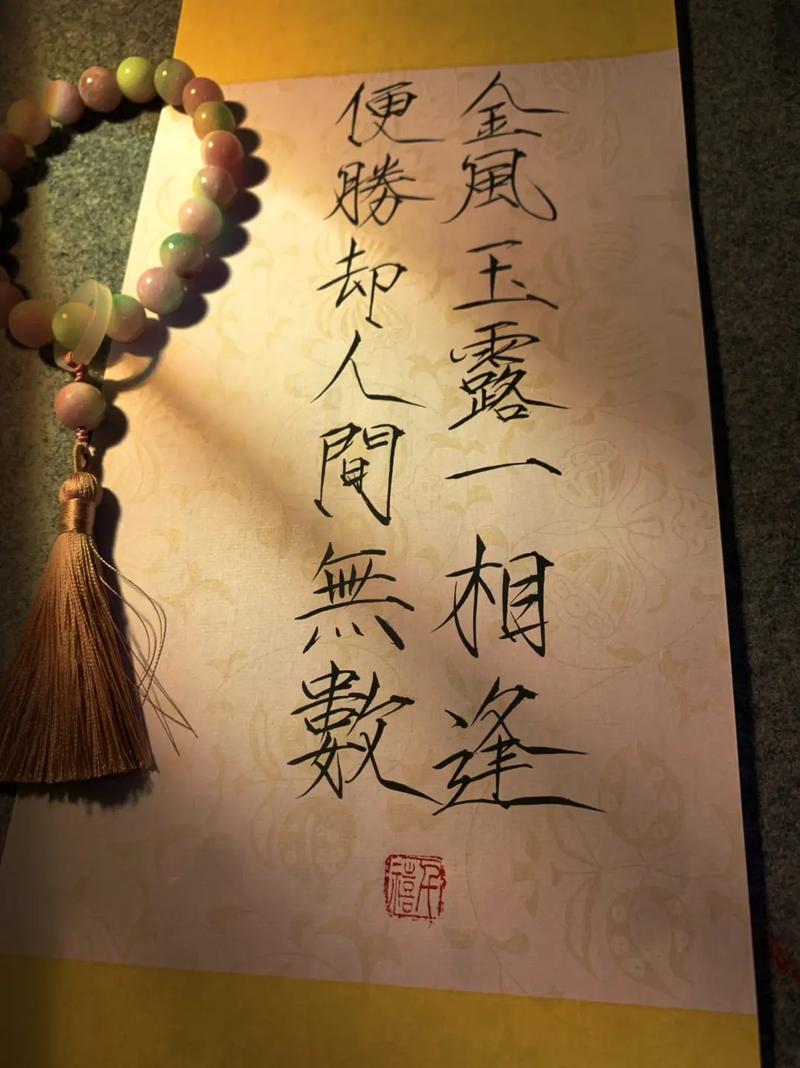 金風玉露一相逢
便勝却人間無數
千禧